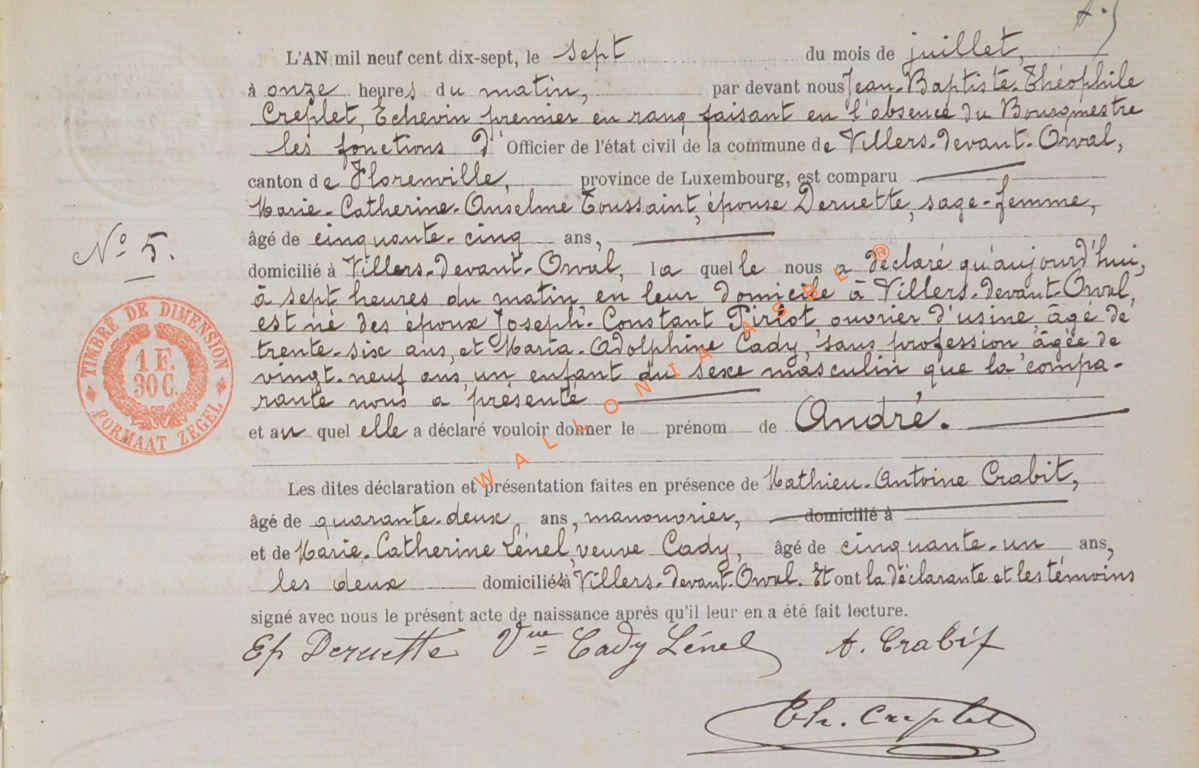 L'AN mil neuf cent dix-sept, le sept du mois de juillet,
à onze heures du matin, par devant nous Jean-Baptiste-Théophile
Creplet, Echevin premier en rang faisant en l'absence du Bourgmestre
les fonctions d' Officier de l'état civil de la commune de Villers-devant-Orval,
canton de Florenville, province de Luxembourg, est comparu
Marie-Catherine-Anselme Toussaint, épouse Deruette, sage-femme,
âgé de cinquante-cinq ans,
N° 5.
domicilié à Villers-devant-Orval, la quelle nous a déclaré qu'aujourd'hui,
à sept heures du matin en leur domicile à Villers-devant-Orval,
est né des époux Joseph-Constant Pirlot, ouvrier d'usine, âgé de
trente-six ans, et Maria-Adolphine Cady, sans profession, âgée de
vingt-neuf ans, un enfant du sexe masculin que la compa-
rante nous a présenté
et au quel elle a déclaré vouloir donner le prénom de André.
TIMBRE DE DIMENSION
1 F.
30 C.
FORMAAT ZEGEL
WALLONIA ASBL ®
Les dites déclaration et présentation faites en présence de Mathieu-Antoine Crabit,
âgé de quarante-deux ans, manouvrier, domicilié à
et de Marie-Catherine Lénel, veuve Cady, âgé de cinquante-un ans,
les deux domiciliés à Villers-devant-Orval. Et ont la déclarante et les témoins
signé avec nous le présent acte de naissance après qu'il leur en a été fait lecture.
Ep Deruette Vve Cady Lénel A. Crabit
Th. Creplet